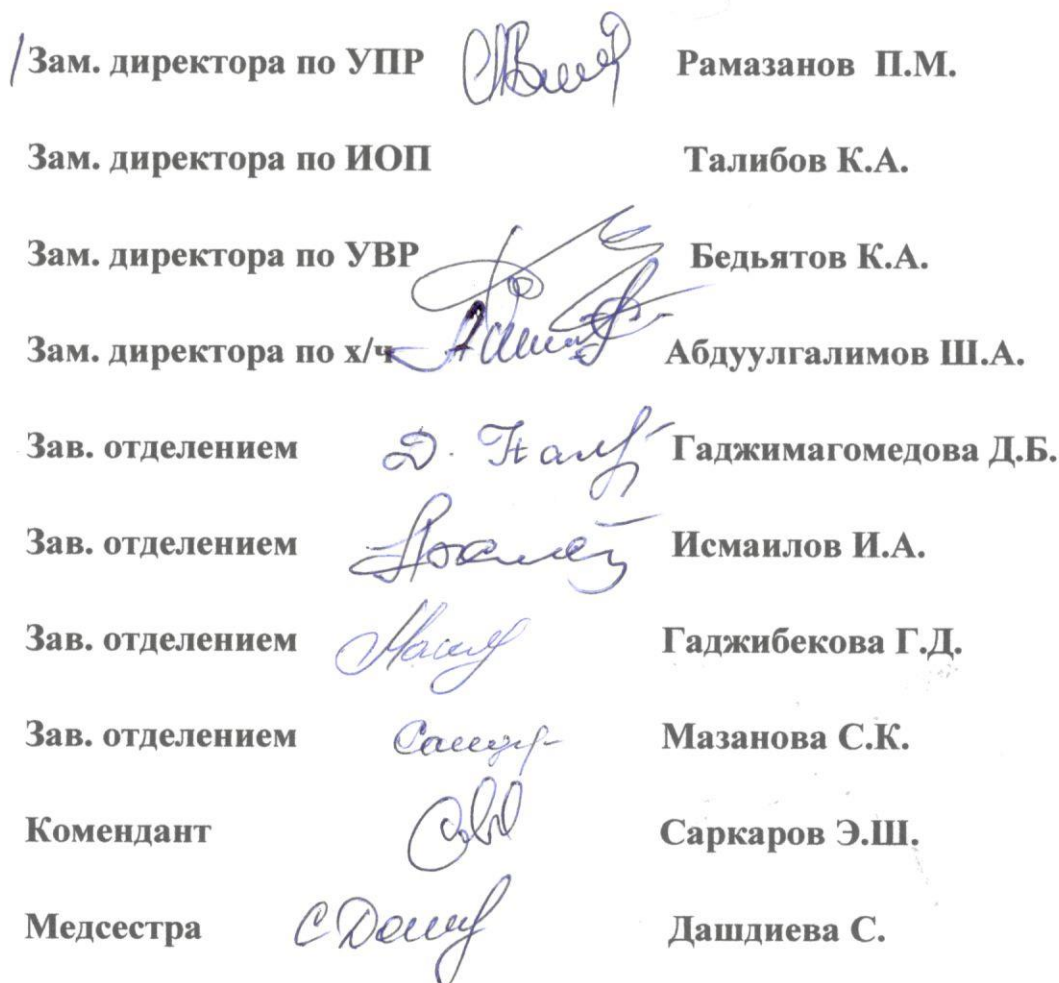 Зам. директора по УПР Рамазанов П.М.
Зам. директора по ИОП Талибов К.А.
Зам. директора по УВР Бедьятов К.А.
Зам. директора по х/ч Абдуулгалимов Ш.А.
Зав. отделением Гаджимагомедова Д.Б.
Зав. отделением Исмаилов И.А.
Зав. отделением Гаджибекова Г.Д.
Зав. отделением Мазанова С.К.
Комендант Саркаров Э.Ш.
Медсестра Дашдиева С.